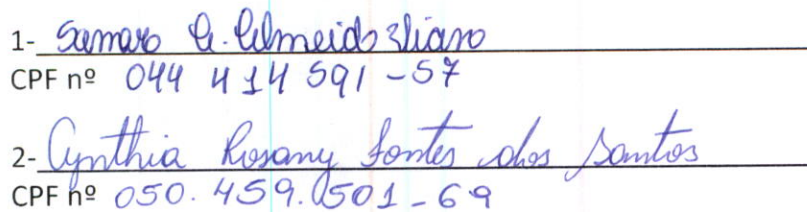 1- Samara A. Almeida Eliano
CPF nº 044 414 591-57
2- Cynthia Rosany Fontes dos Santos
CPF nº 050.459.501-69